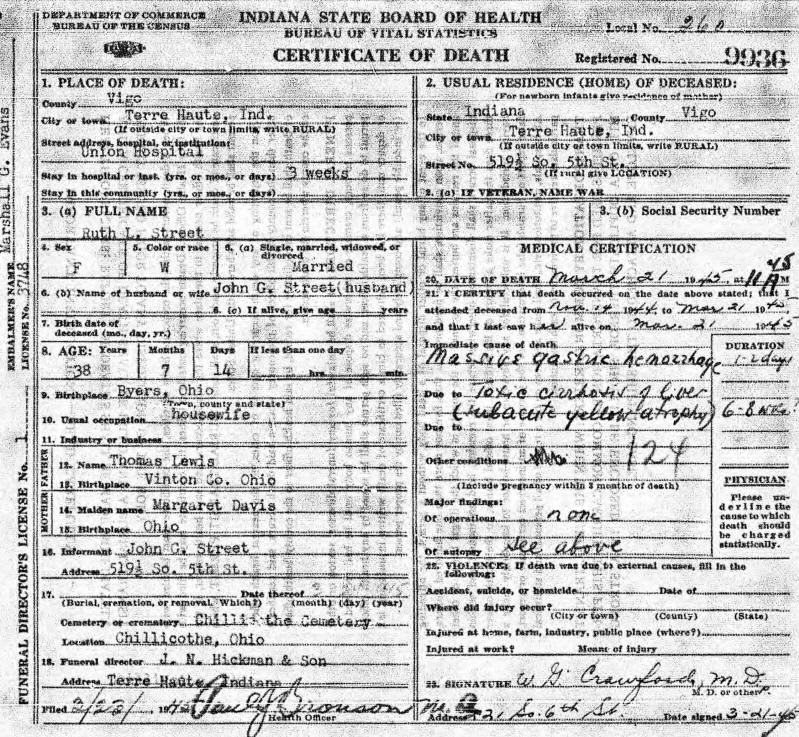 DEPARTMENT OF COMMERCE
BUREAU OF THE CENSUS
INDIANA STATE BOARD OF HEALTH
BUREAU OF VITAL STATISTICS
CERTIFICATE OF DEATH
Local No. 260
Registered No. 9936
1. PLACE OF DEATH:
County Vigo
City or town Terre Haute, Ind.
(If outside city or town limits, write RURAL)
Street address, hospital, or institution:
Union Hospital
Stay in hospital or inst. (yrs. or mos., or days) 3 weeks
Stay in this community (yrs., or mos., or days)
2. USUAL RESIDENCE (HOME) OF DECEASED:
(For newborn infants give residence of mother)
State Indiana County Vigo
City or town Terre Haute, Ind.
(If outside city or town limits, write RURAL)
Street No. 519½ So. 5th St.
(If rural give LOCATION)
2. (a) IF VETERAN, NAME WAR
3. (a) FULL NAME
Ruth L. Street
3. (b) Social Security Number
4. Sex F
5. Color or race W
6. (a) Single, married, widowed, or divorced Married
6. (b) Name of husband or wife John G. Street(husband)
6. (c) If alive, give age years
7. Birth date of
deceased (mo., day, yr.)
8. AGE: Years Months Days If less than one day
38 7 14 hrs. min.
9. Birthplace Byers, Ohio
(Town, county and state)
10. Usual occupation housewife
11. Industry or business
FATHER
12. Name Thomas Lewis
13. Birthplace Vinton Co. Ohio
MOTHER
14. Maiden name Margaret Davis
15. Birthplace Ohio
16. Informant John G. Street
Address 519½ So. 5th St.
17. Date thereof
(Burial, cremation, or removal. Which?) (month) (day) (year)
Cemetery or crematory Chilli the Cemetery
Location Chillicothe, Ohio
18. Funeral director J. N. Hickman & Son
Address Terre Haute, Indiana
Filed 3/23/ 19 Bronson M.D.
Health Officer
MEDICAL CERTIFICATION
20. DATE OF DEATH March 21 1945, at 11 45 A M
21. I CERTIFY that death occurred on the date above stated; that I
attended deceased from Nov. 14 1944 to Mar 21 1945
and that I last saw her alive on Mar. 21 1945
Immediate cause of death
Massive gastric hemorrhage
DURATION
1-2 days
Due to Toxic cirrhosis of liver
(subacute yellow atrophy) 6-8 wks?
Due to
Other conditions 124
(Include pregnancy within 3 months of death)
Major findings:
Of operations none
Of autopsy see above
PHYSICIAN
Please underline the cause to which death should be charged statistically.
22. VIOLENCE: If death was due to external causes, fill in the
following:
Accident, suicide, or homicide Date of
Where did injury occur?
(City or town) (County) (State)
Injured at home, farm, industry, public place (where?)
Injured at work? Means of injury
23. SIGNATURE W. G. Crawford, M.D.
M. D. or other
Address 121 So. 6th St. Date signed 3-21-45
EMBALMER'S NAME Marshall G. Evans
LICENSE NO. 3748
FUNERAL DIRECTOR'S LICENSE No. 1